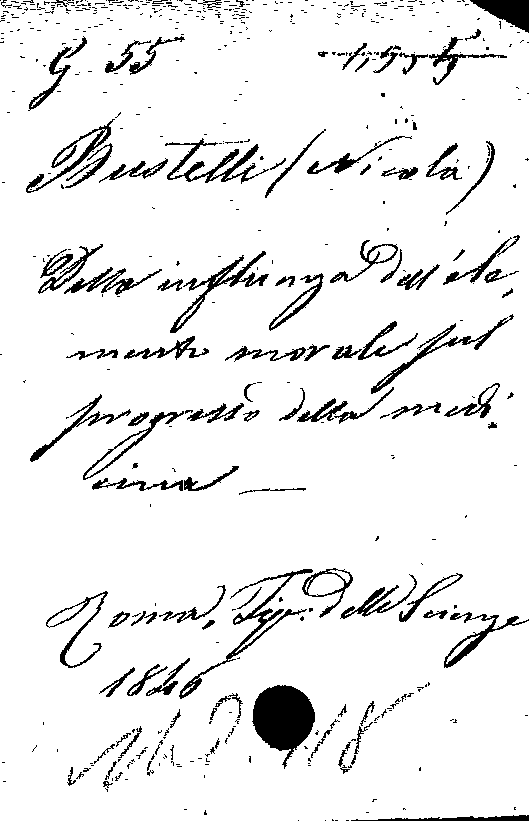 G 55
Bustelli (Nicola)
Della influenza dell'ele,
mento morale sul
progresso della medi,
cina —
Roma, Tip: delle Scienze
1846